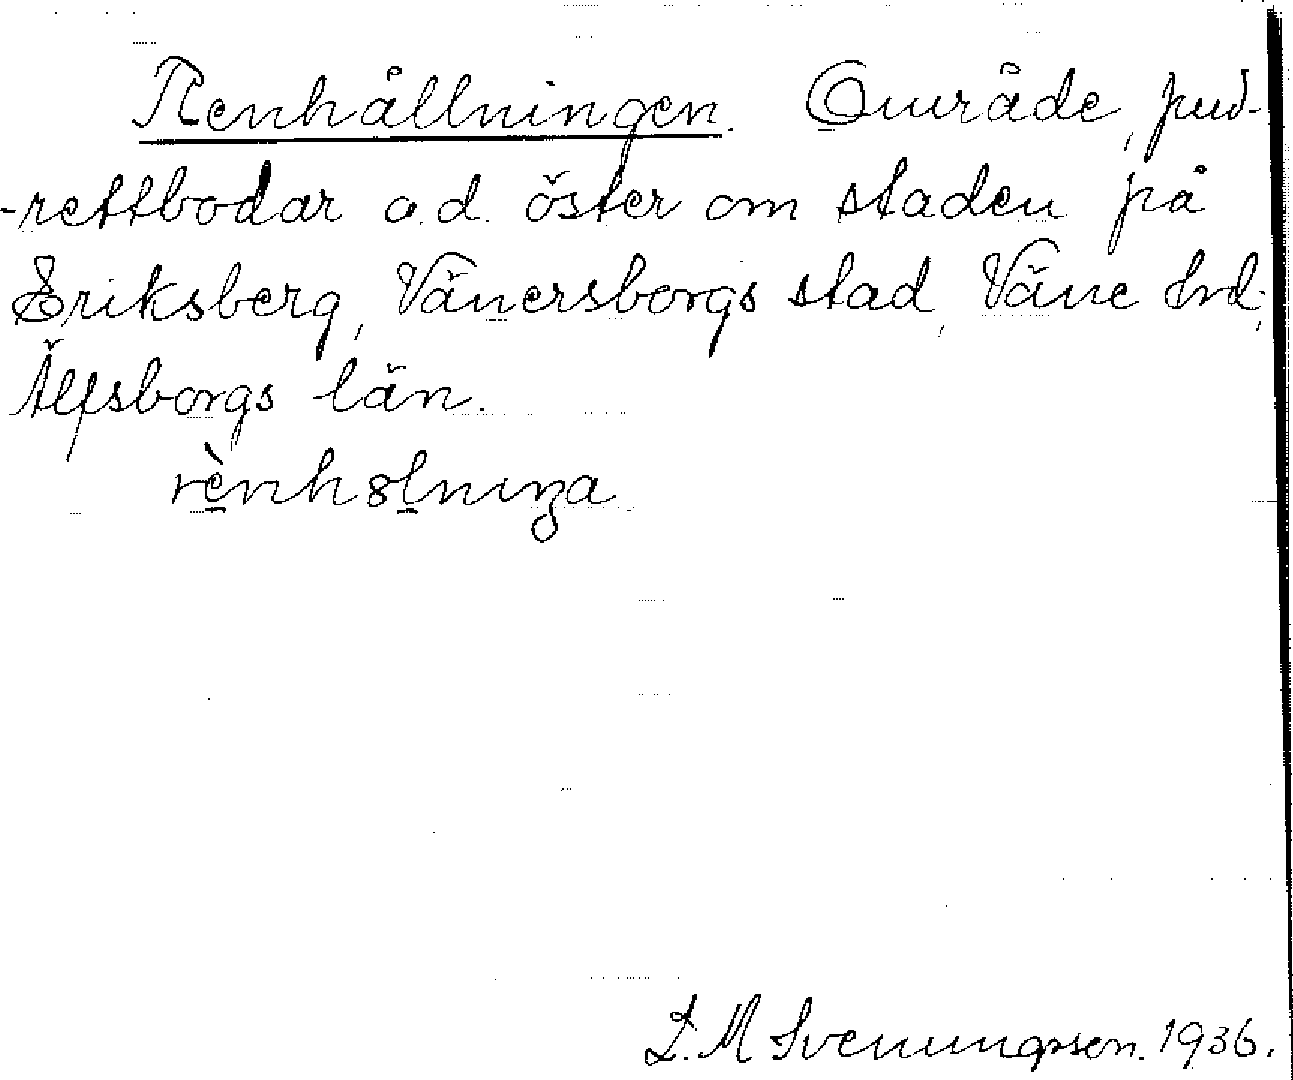 Renhållningen. Område, pud-
-rettbodar o.d. öster om staden på
Eriksberg, Vänersborgs stad, Väne hd,
Älfsborgs län.
L. M Svenungsson. 1936.